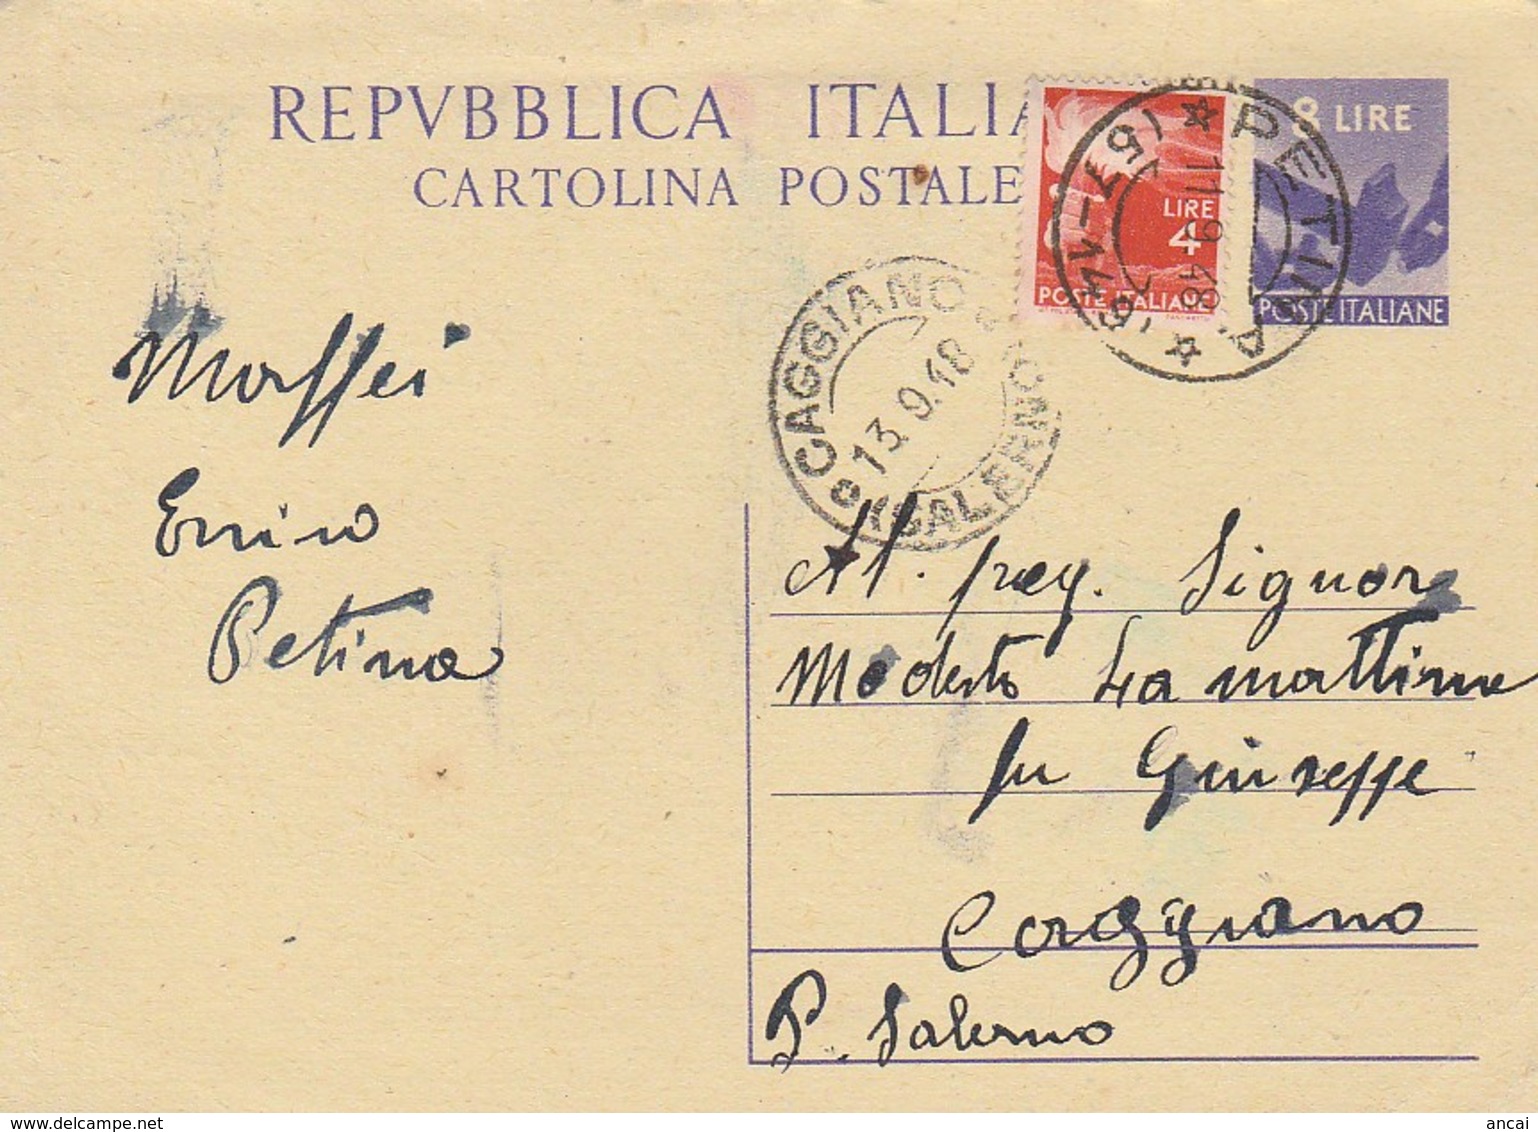 REPVBBLICA ITALIA
CARTOLINA POSTALE
8 LIRE
POSTE ITALIANE
LIRE
4
POSTE ITALIANE
PETINA
11.9.48
(57-14)
CAGGIANO
(SALERNO)
13.9.48
Maffei
Enrico
Petina
Al preg. Signor
Modesto Lamattina
fu Giuseppe
Caggiano
P. Salerno
delcampe.net
ancai